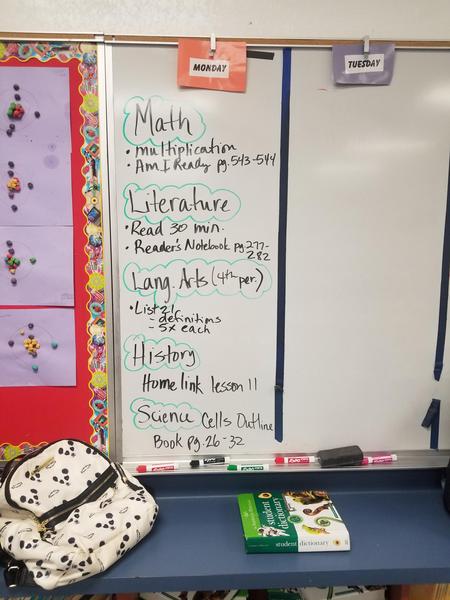 MONDAY
TUESDAY
Math
• multiplication
• Am I Ready pg. 543-544
Literature
• Read 30 min.
• Reader's Notebook pg 277-
282
Lang. Arts (4th per.)
• List 21
- definitions
- 5x each
History
Homelink lesson 11
Science Cells Outline
Book pg. 26-32
student
dictionary
student dictionary